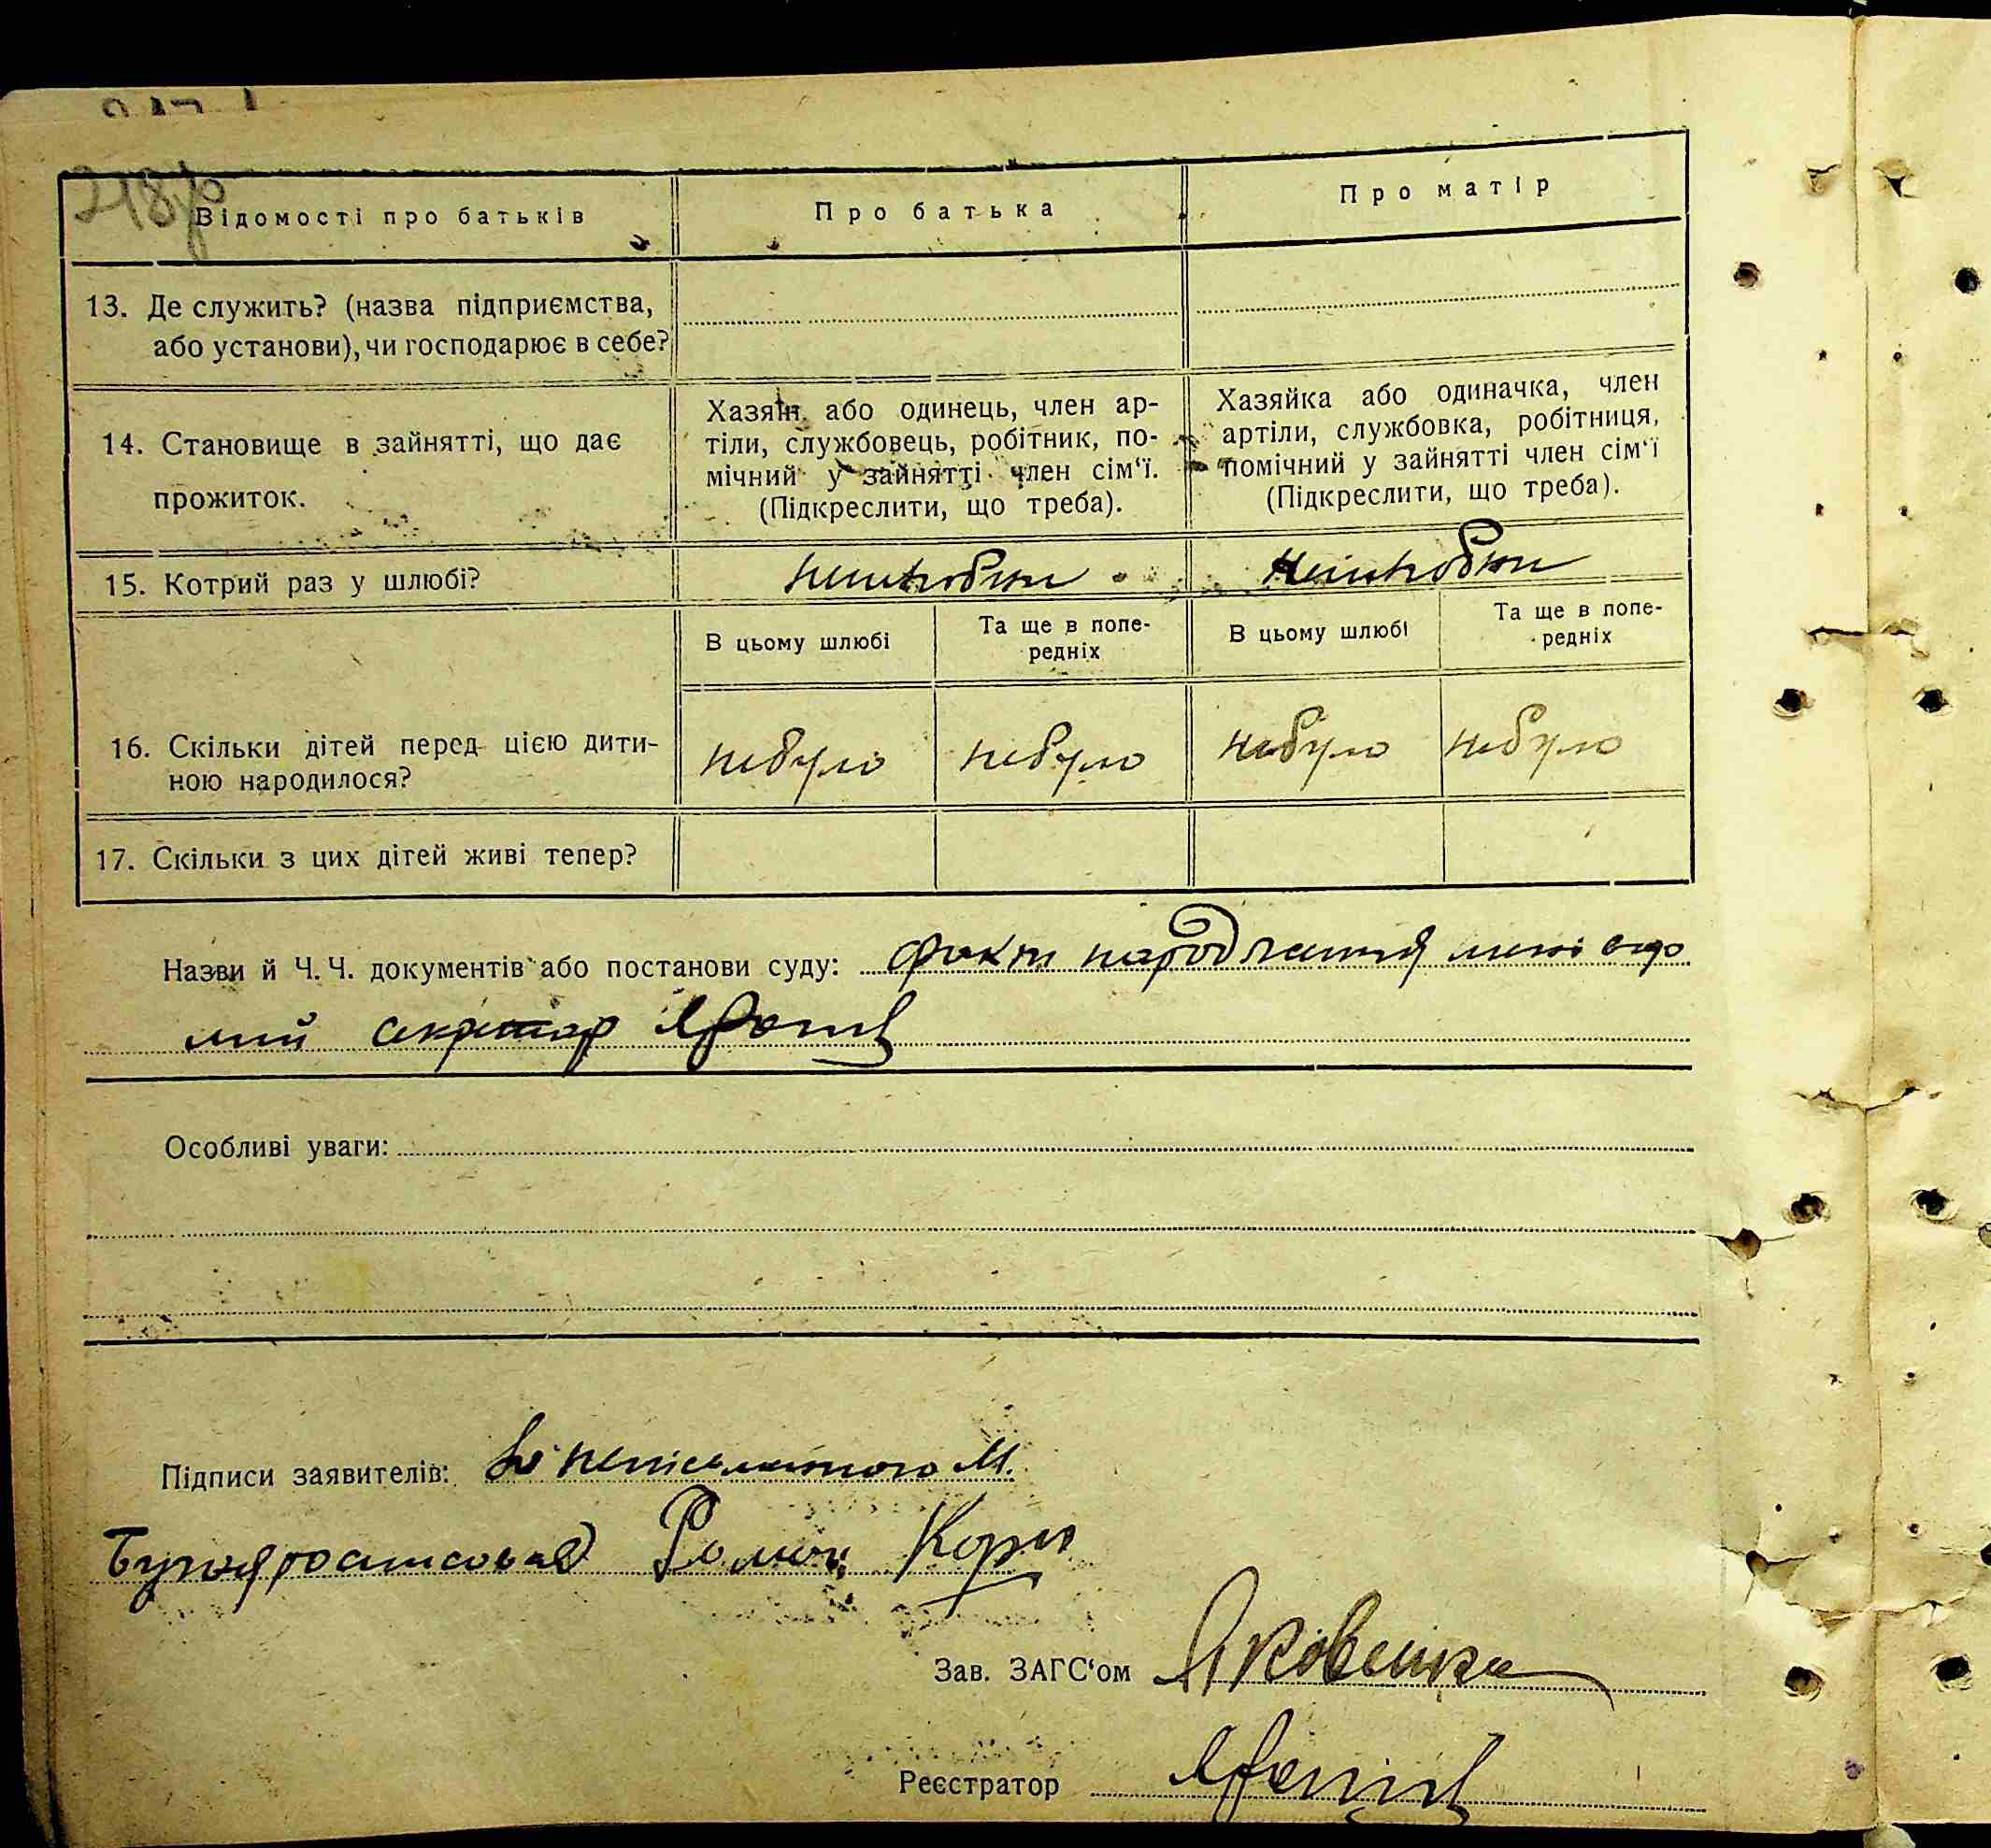 218
Відомості про батьків
Про батька
Про матір
13. Де служить? (назва підприємства,
або установи), чи господарює в себе?
14. Становище в зайнятті, що дає
прожиток.
Хазяїн або одинець, член ар-
тіли, службовець, робітник, по-
мічний у зайнятті член сім'ї.
(Підкреслити, що треба).
Хазяйка або одиначка, член
артіли, службовка, робітниця,
помічний у зайнятті член сім'ї
(Підкреслити, що треба).
15. Котрий раз у шлюбі?
В цьому шлюбі
Та ще в попе-
редніх
В цьому шлюбі
Та ще в попе-
редніх
16. Скільки дітей перед цією дити-
ною народилося?
небуло
небуло
небуло
небуло
17. Скільки з цих дітей живі тепер?
Назви й Ч. Ч. документів або постанови суду: факт народження мені відо
мий секретар
Особливі уваги:
Підписи заявителів: За неписьменного М.
Роман
Зав. ЗАГС'ом
Реєстратор